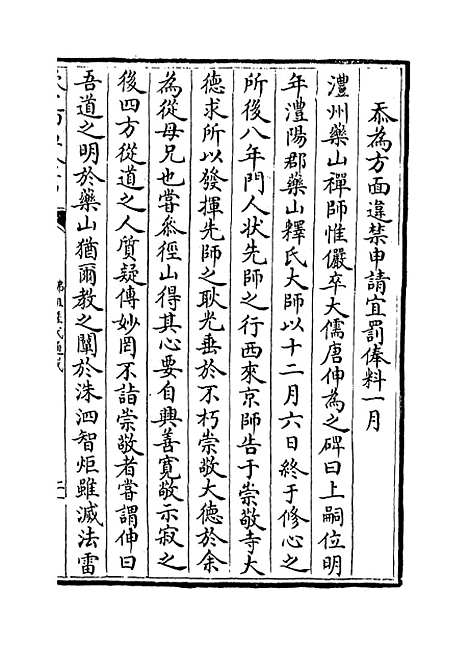 忝為方面違禁申請宜罰俸料一月
澧州藥山禪師惟儼卒大儒唐伸為之碑曰上嗣位明
年澧陽郡藥山釋氏大師以十二月六日終于修心之
所後八年門人狀先師之行西來京師告于崇敬寺大
德求所以發揮先師之耿光垂於不朽崇敬大德於余
為從母兄也嘗叅徑山得其心要自興善寛敬示寂之
後四方從道之人質疑傳妙罔不詣崇敬者嘗謂伸曰
吾道之明於藥山猶爾教之闡於洙泗智炬雖滅法雷